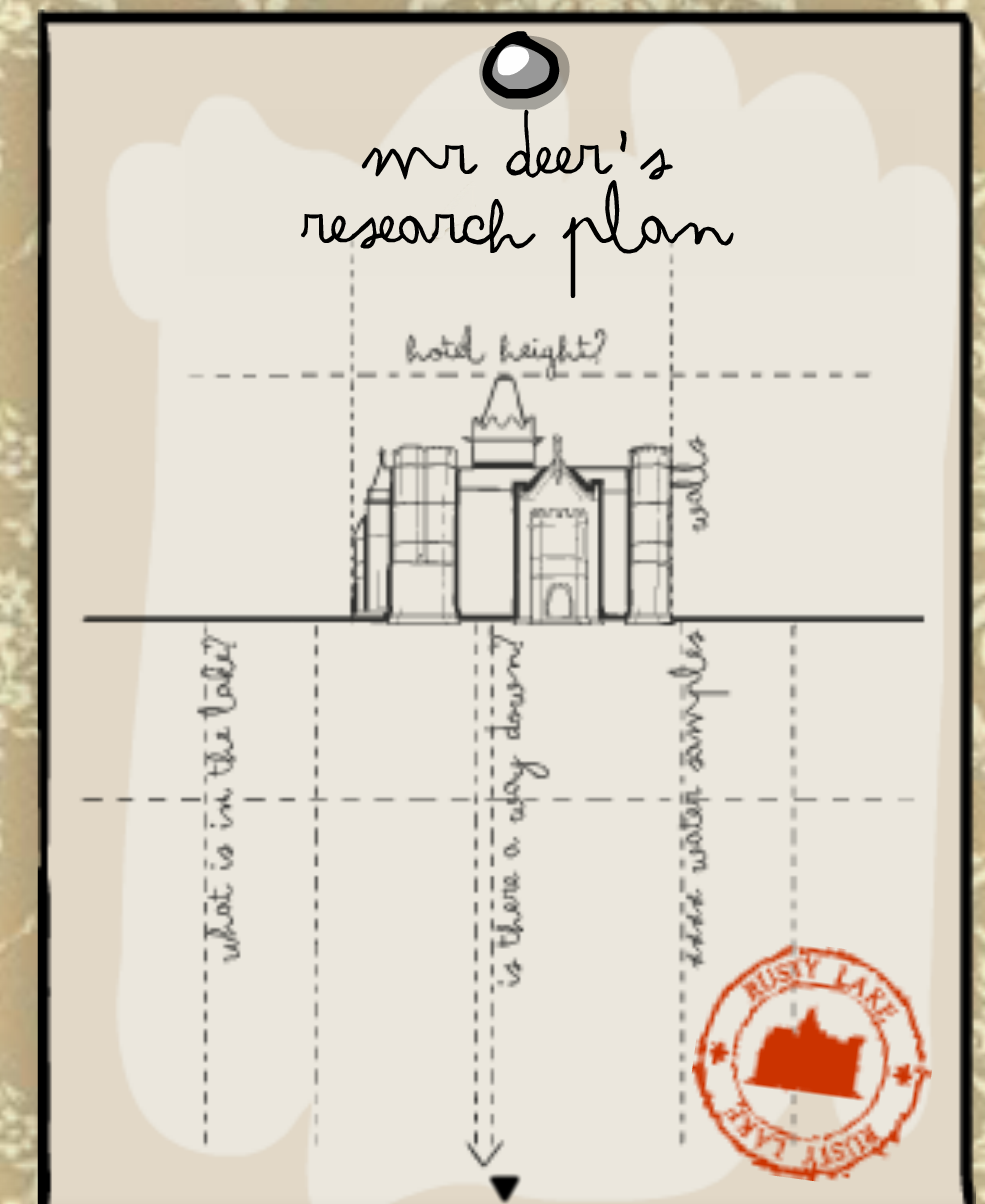 mr deer's
research plan
hotel height?
walls
what is in the lake?
is there a way down?
xxxx water samples
RUSTY LAKE
RUSTY LAKE